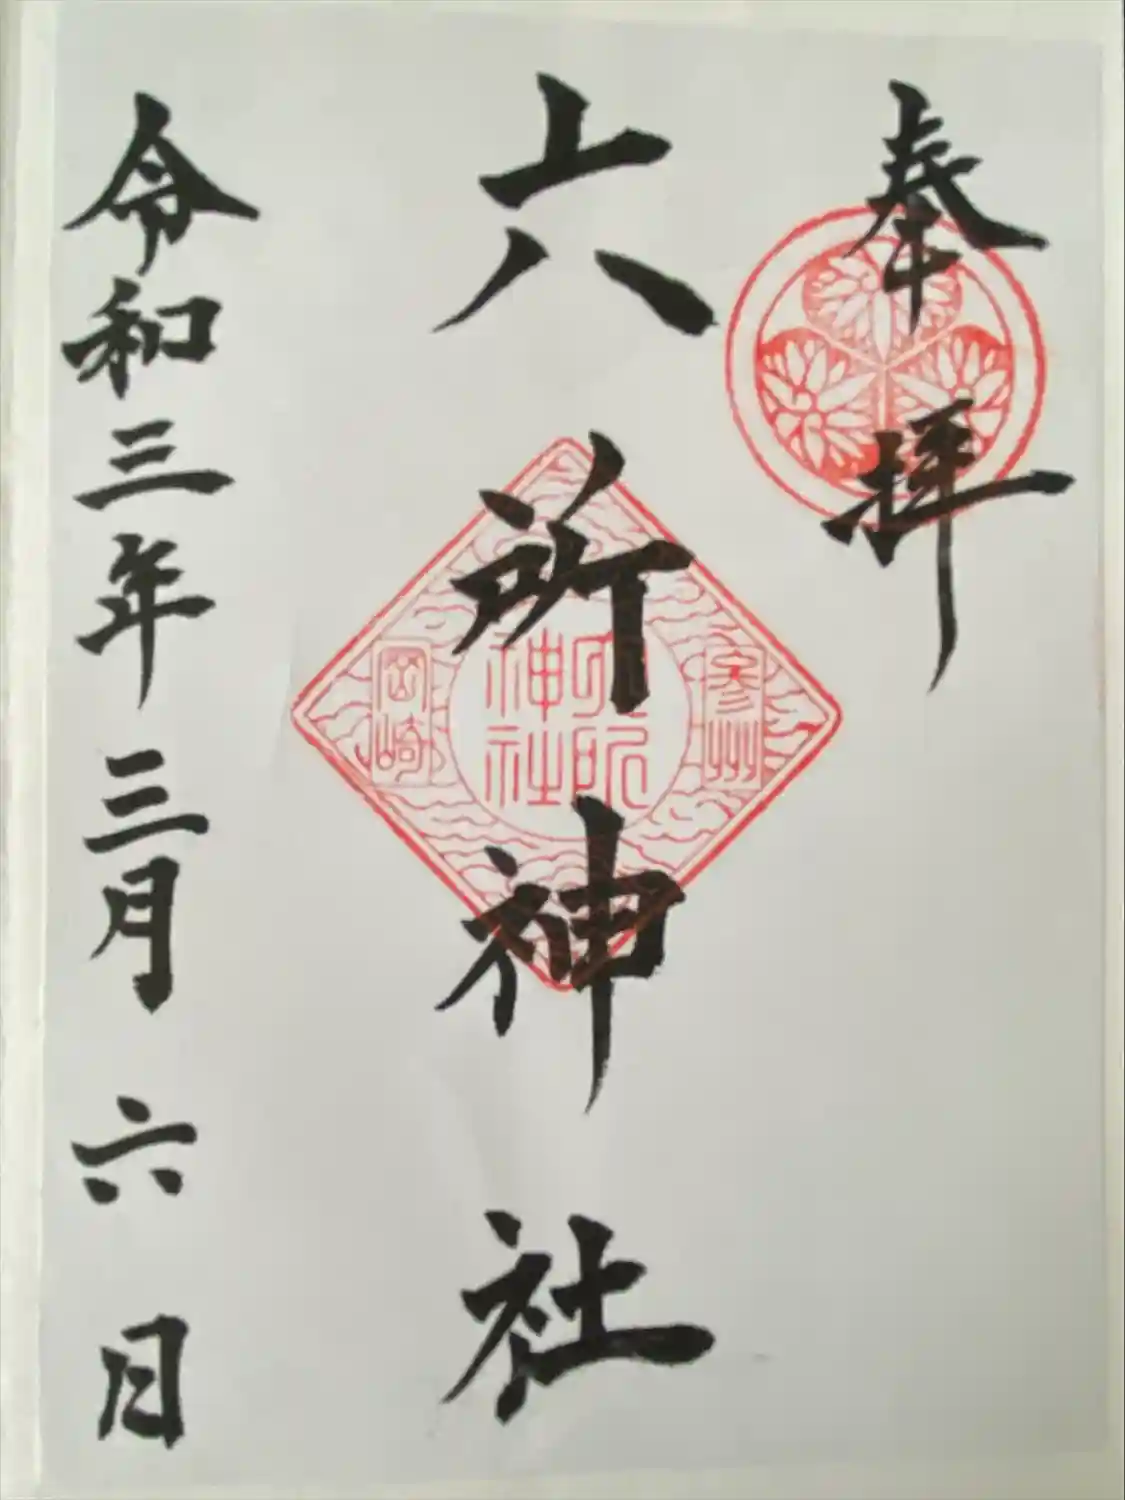 奉拝
六所神社
参州
六所神社
岡崎
令和三年三月六日